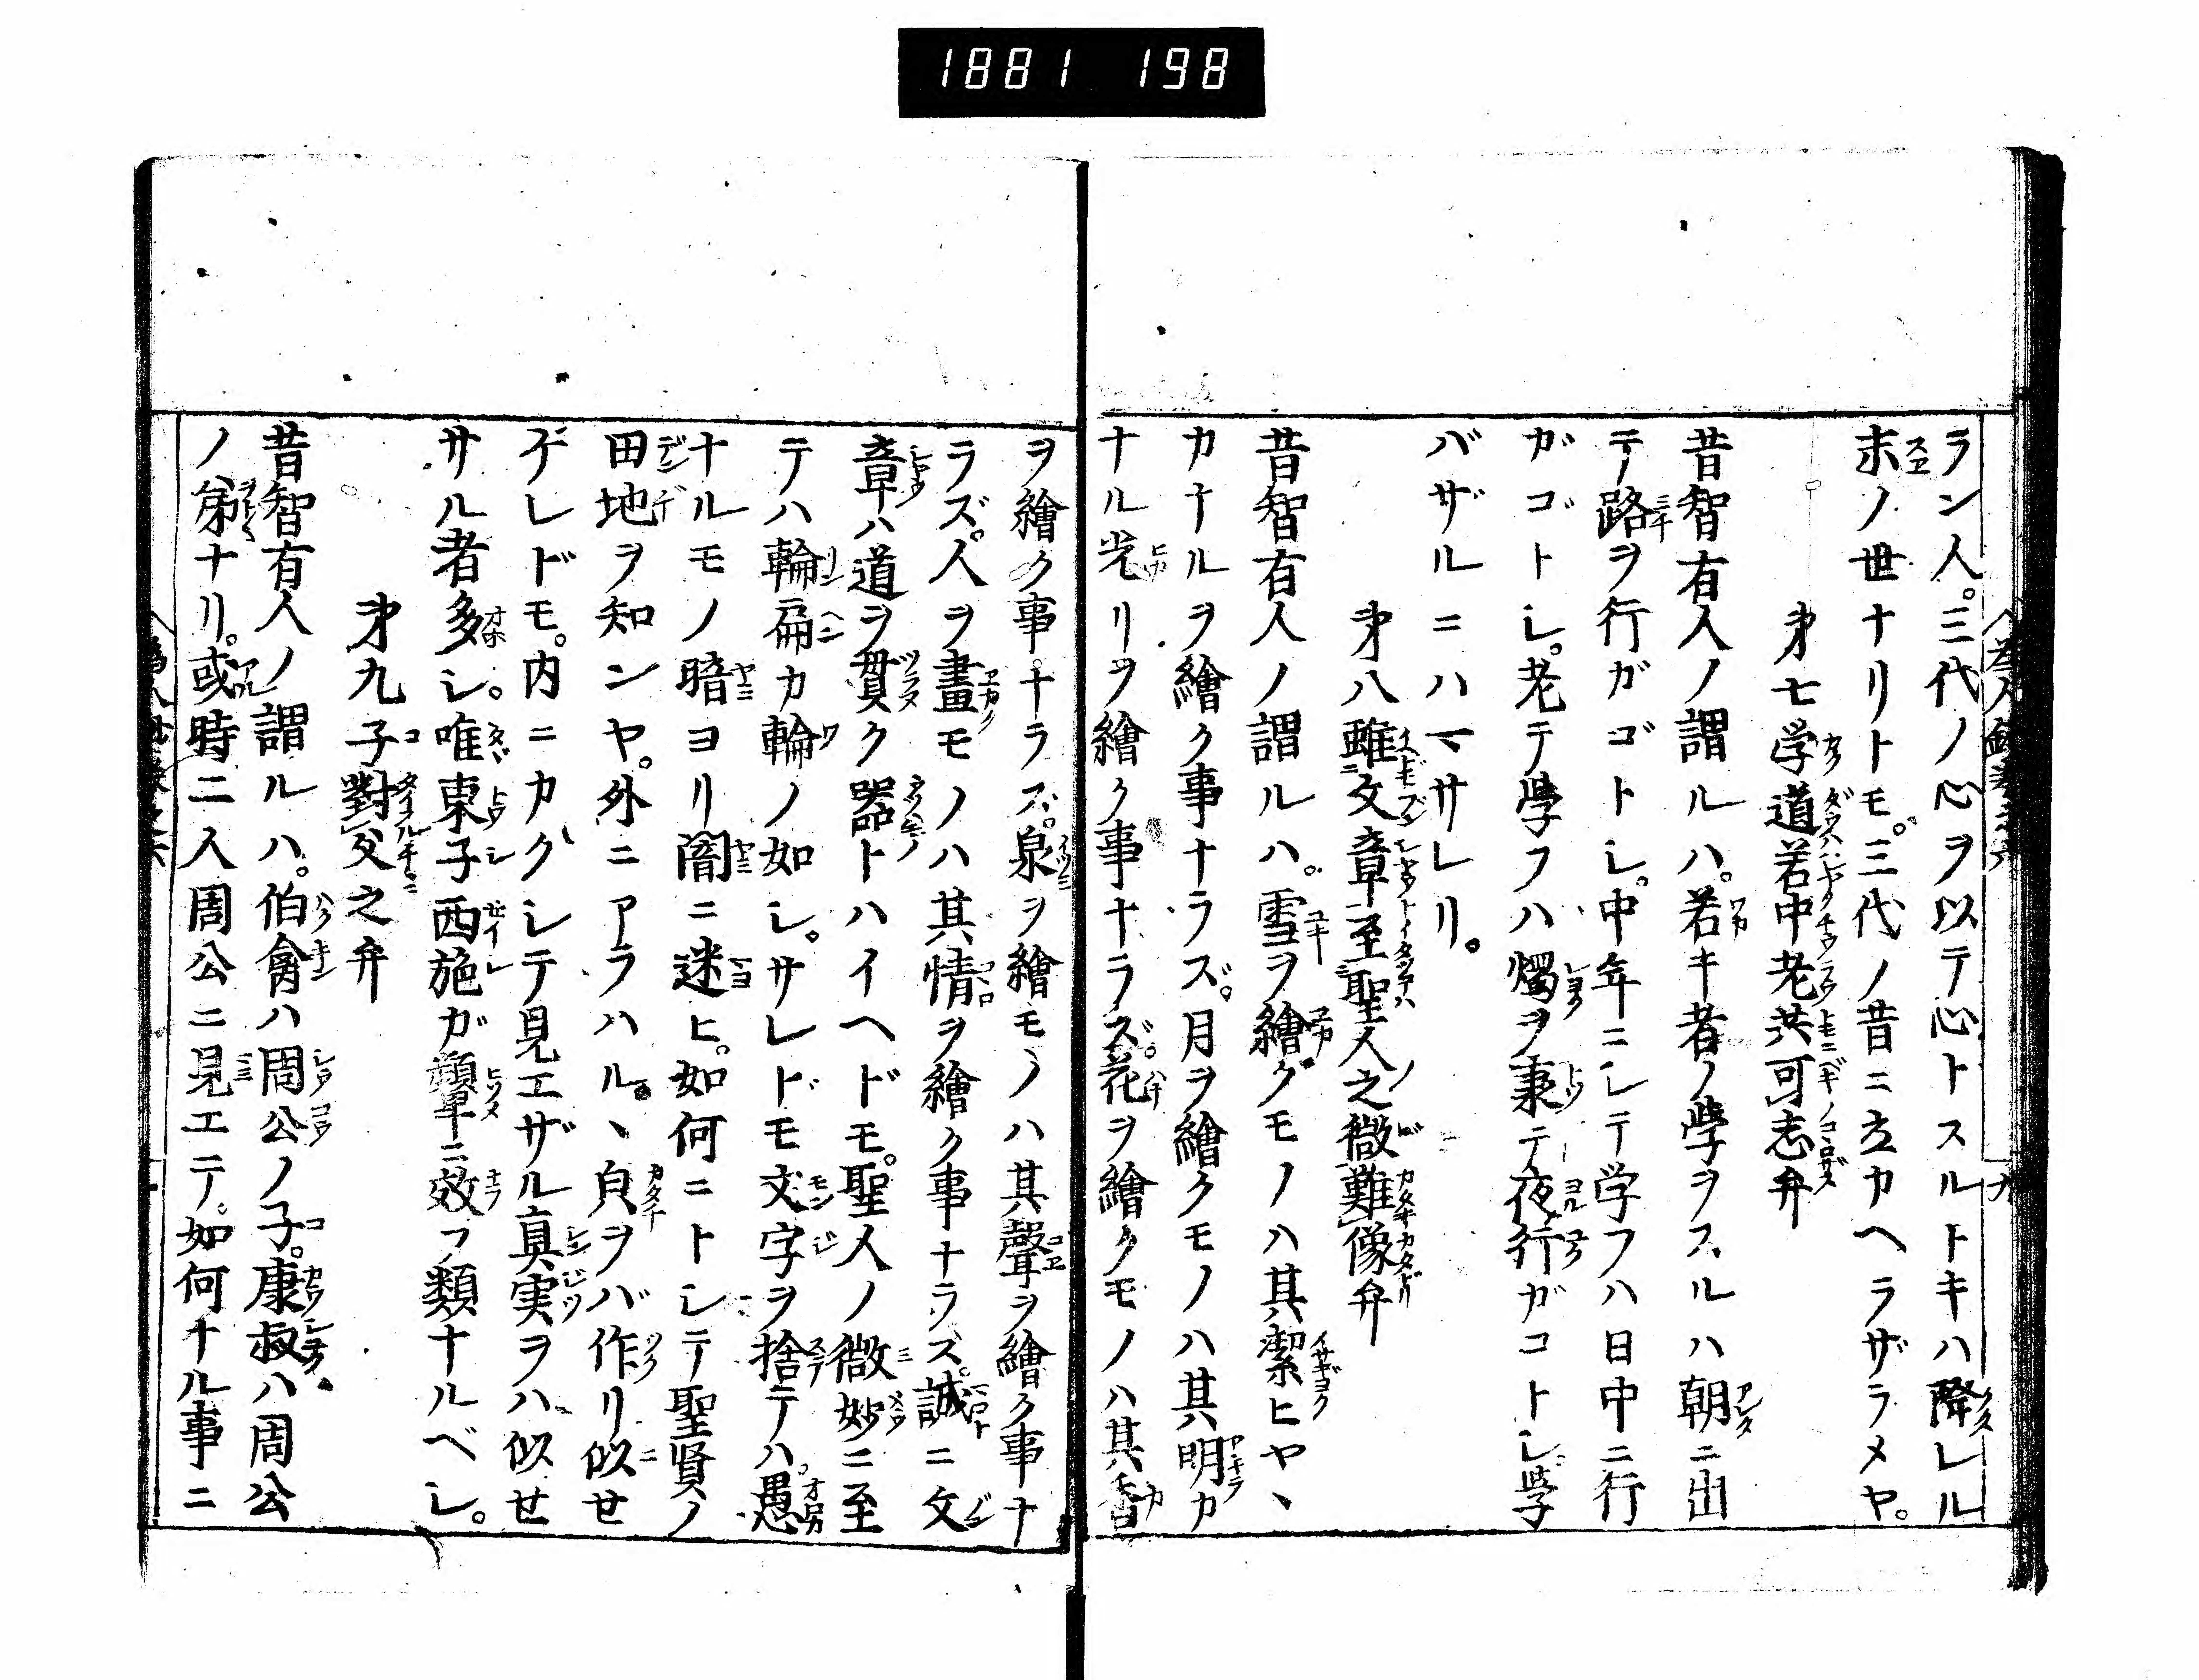 1881 198
ラン人。三代ノ心ヲ以テ心トスルトキハ降レル
末ノ世ナリトモ。三代ノ昔ニ立カヘラザラメヤ。
第七学道若中老共可志弁
昔智有人ノ謂ルハ。若キ者ノ學ヲスルハ朝ニ出
テ路ヲ行ガゴトシ。中年ニシテ学フハ日中ニ行
ガゴトシ。老テ學フハ燭ヲ秉テ夜行ガコトシ學
バザルニハマサレリ。
第八雖文章至聖人之微難像弁
昔智有人ノ謂ルハ。雪ヲ繪クモノハ其潔ヒヤヽ
カナルヲ繪ク事ナラズ。月ヲ繪クモノハ其明カ
ナル光リヲ繪ク事ナラズ。花ヲ繪クモノハ其香
ヲ繪ク事ナラズ。泉ヲ繪モノハ其聲ヲ繪ク事ナ
ラズ。人ヲ畫モノハ其情ヲ繪ク事ナラズ。誠ニ文
章ハ道ヲ貫ク器トハイヘドモ。聖人ノ微妙ニ至
テハ輪扁カ輪ノ如シ。サレドモ文字ヲ捨テハ。愚
ナルモノ暗ヨリ闇ニ迷ヒ。如何ニトシテ聖賢ノ
田地ヲ知ンヤ。外ニアラハルヽ皃ヲバ作リ似せ
ゲレドモ。内ニカクレテ見エザル真実ヲハ似せ
サル者多シ。唯東子西施ガ顰ニ效フ類ナルベシ。
第九子對父之弁
昔智有人ノ謂ルハ。伯禽ハ周公ノ子。康叔ハ周公
ノ弟ナリ。或時二人周公ニ見エテ。如何ナル事ニ